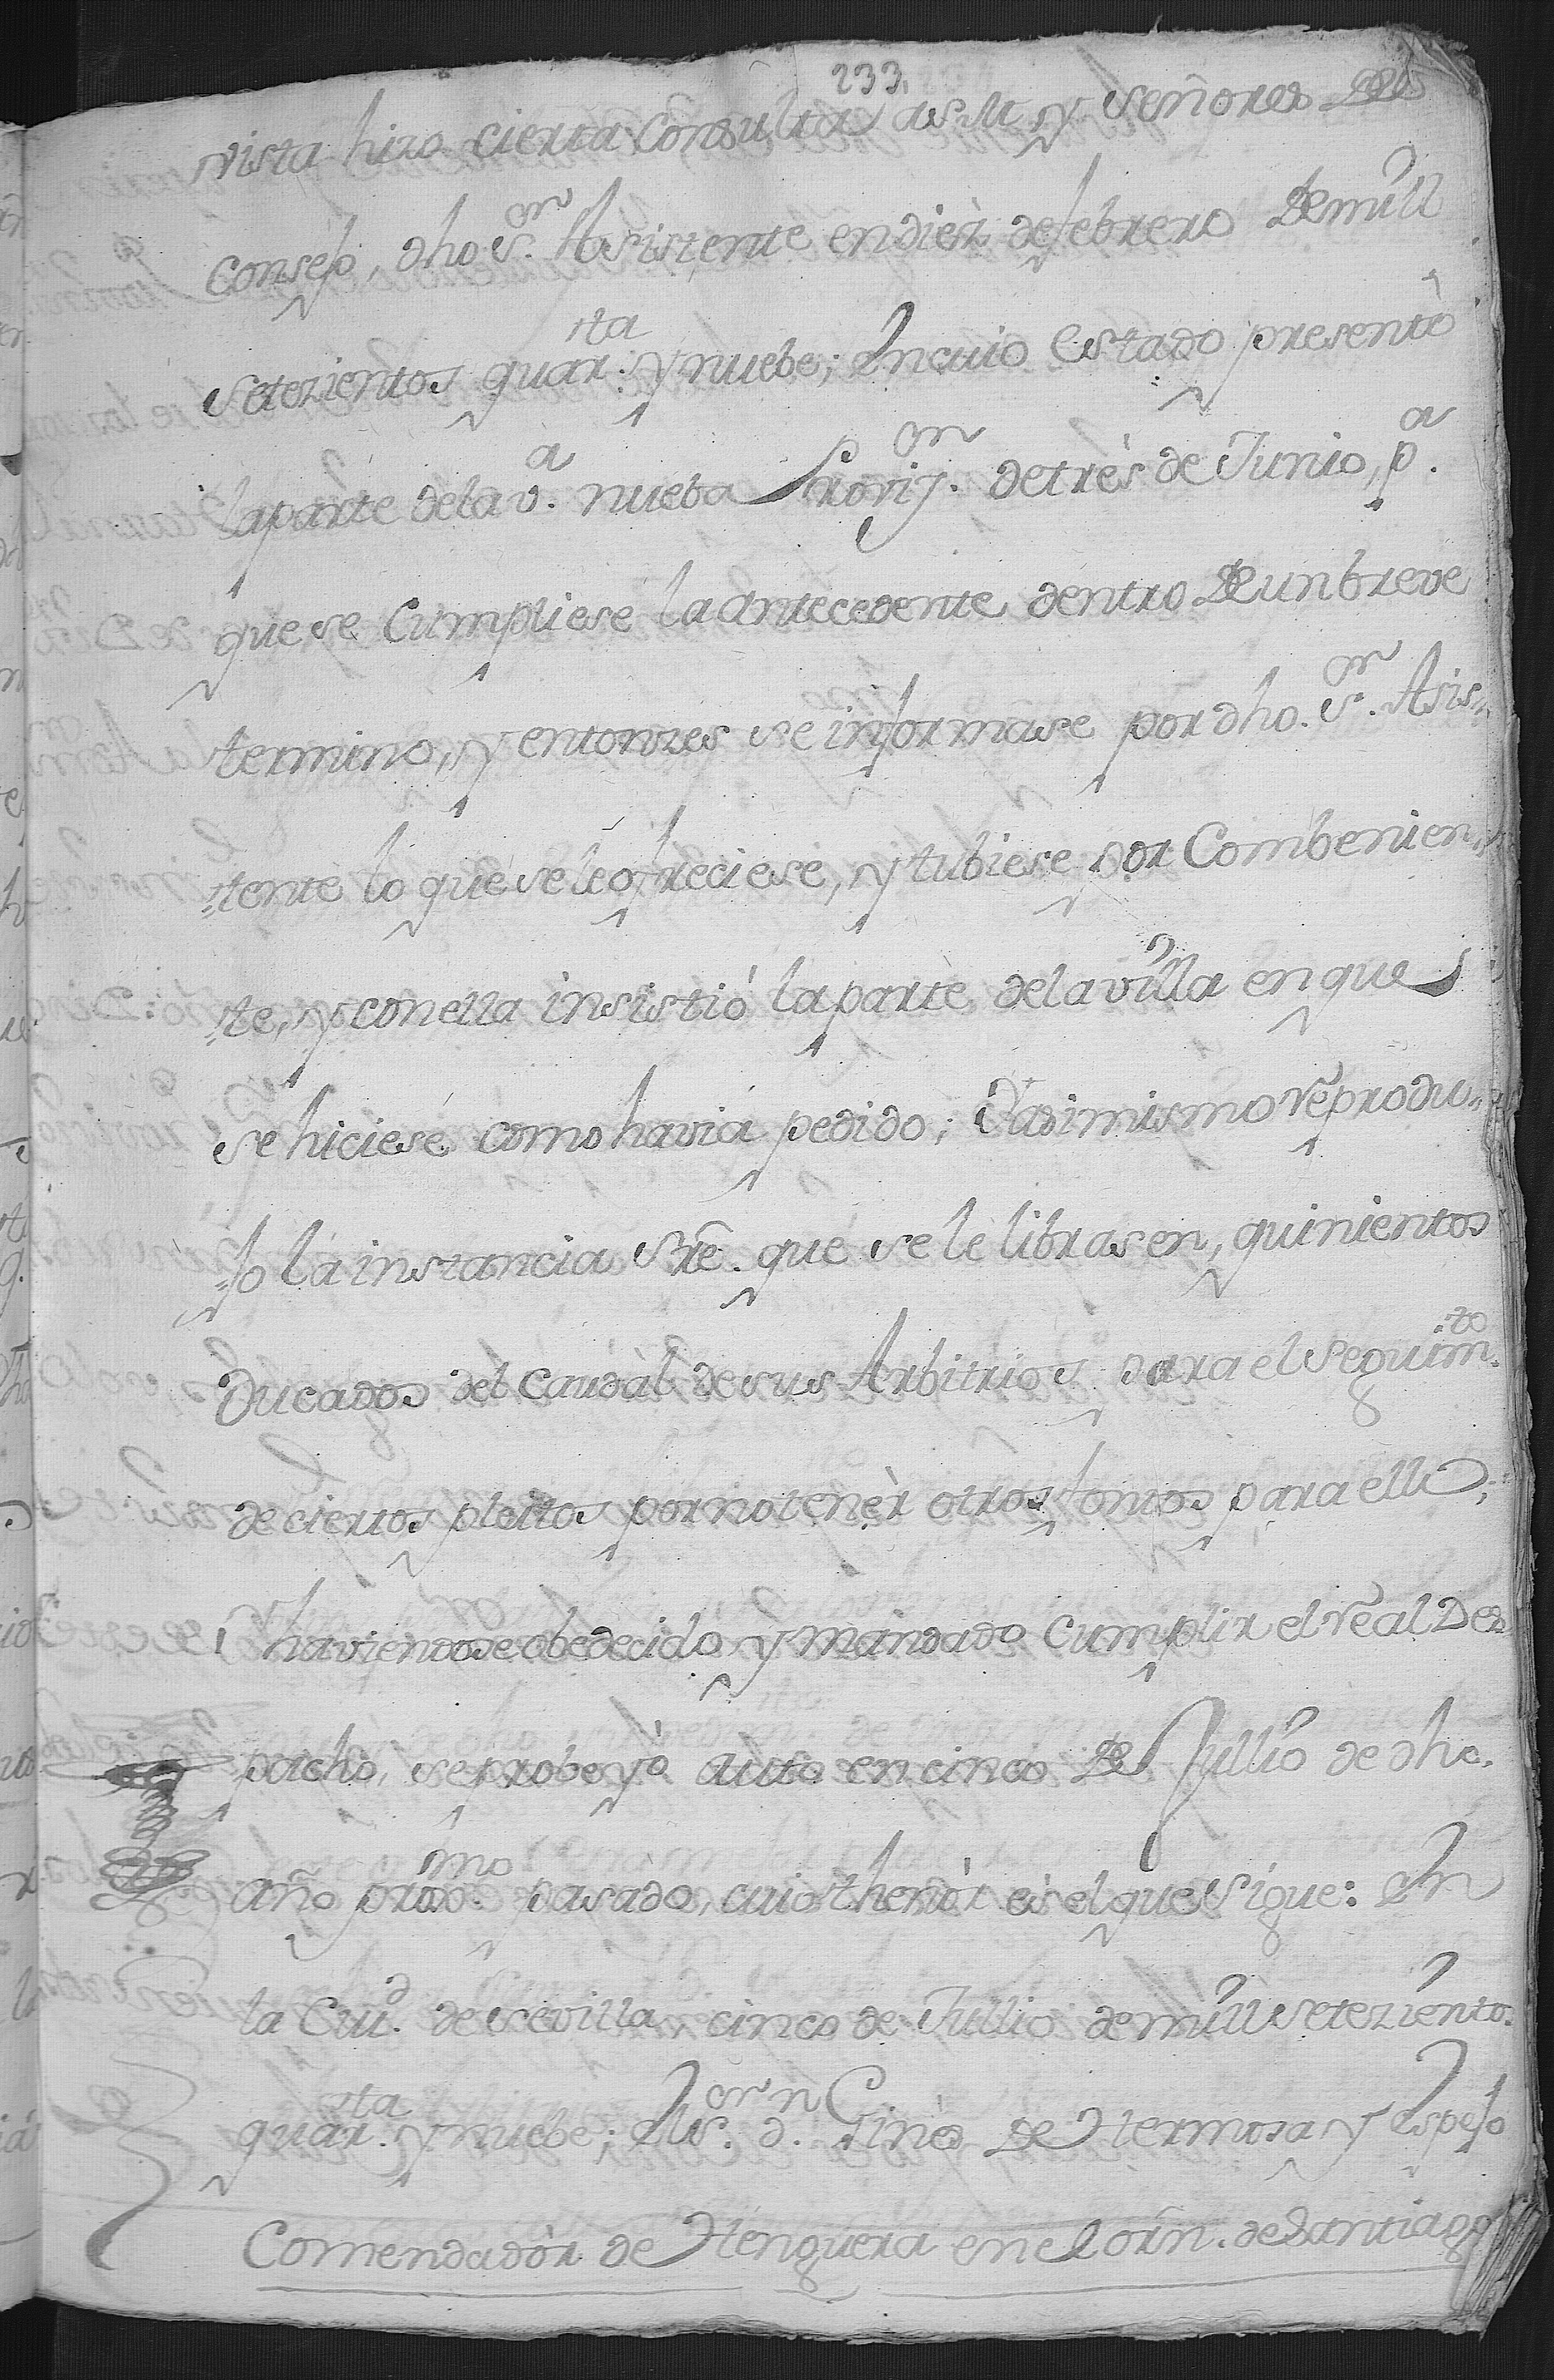 233.
vista hizo cierta Consulta à S. M. y Señores del
Consejo, dho S.or Asistente en diez de febrero de mill
setezientos quar.ta y nuebe; En cuio estado presentò
la parte de la v.a nueba Provij.on de tres de Junio, p.a
que se Cumpliese la antecedente dentro de un breve
termino, y entonzes se informase por dho. S.or Asis-
=tente lo que se le ofreciese, y tubiese por Combenien-
=te, y con ella insistió la parte de la villa en que
se hiciese como havia pedido; Y asimismo reprodu-
=jo la instancia Sre. que se le librasen, quinientos
Ducados del Caudal de sus Arbitrios para el seguim.to
de ciertos pleitos por no tenèr otros fontos para ello;
Y haviendose obedecido y mandado Cumplir el real Des
pacho, se probeyò auto en cinco de Jullio de dho.
año proxo.mo pasado, cuio thenòr es el que sigue: En
la Ciu.d de Sevilla cinco de Jullio de mill setezientos.
quar.ta y nuebe; El S.or d.n Ginès de Hermosa y Espejo
Comendadòr de Henguera en el Orñ. de Santiago